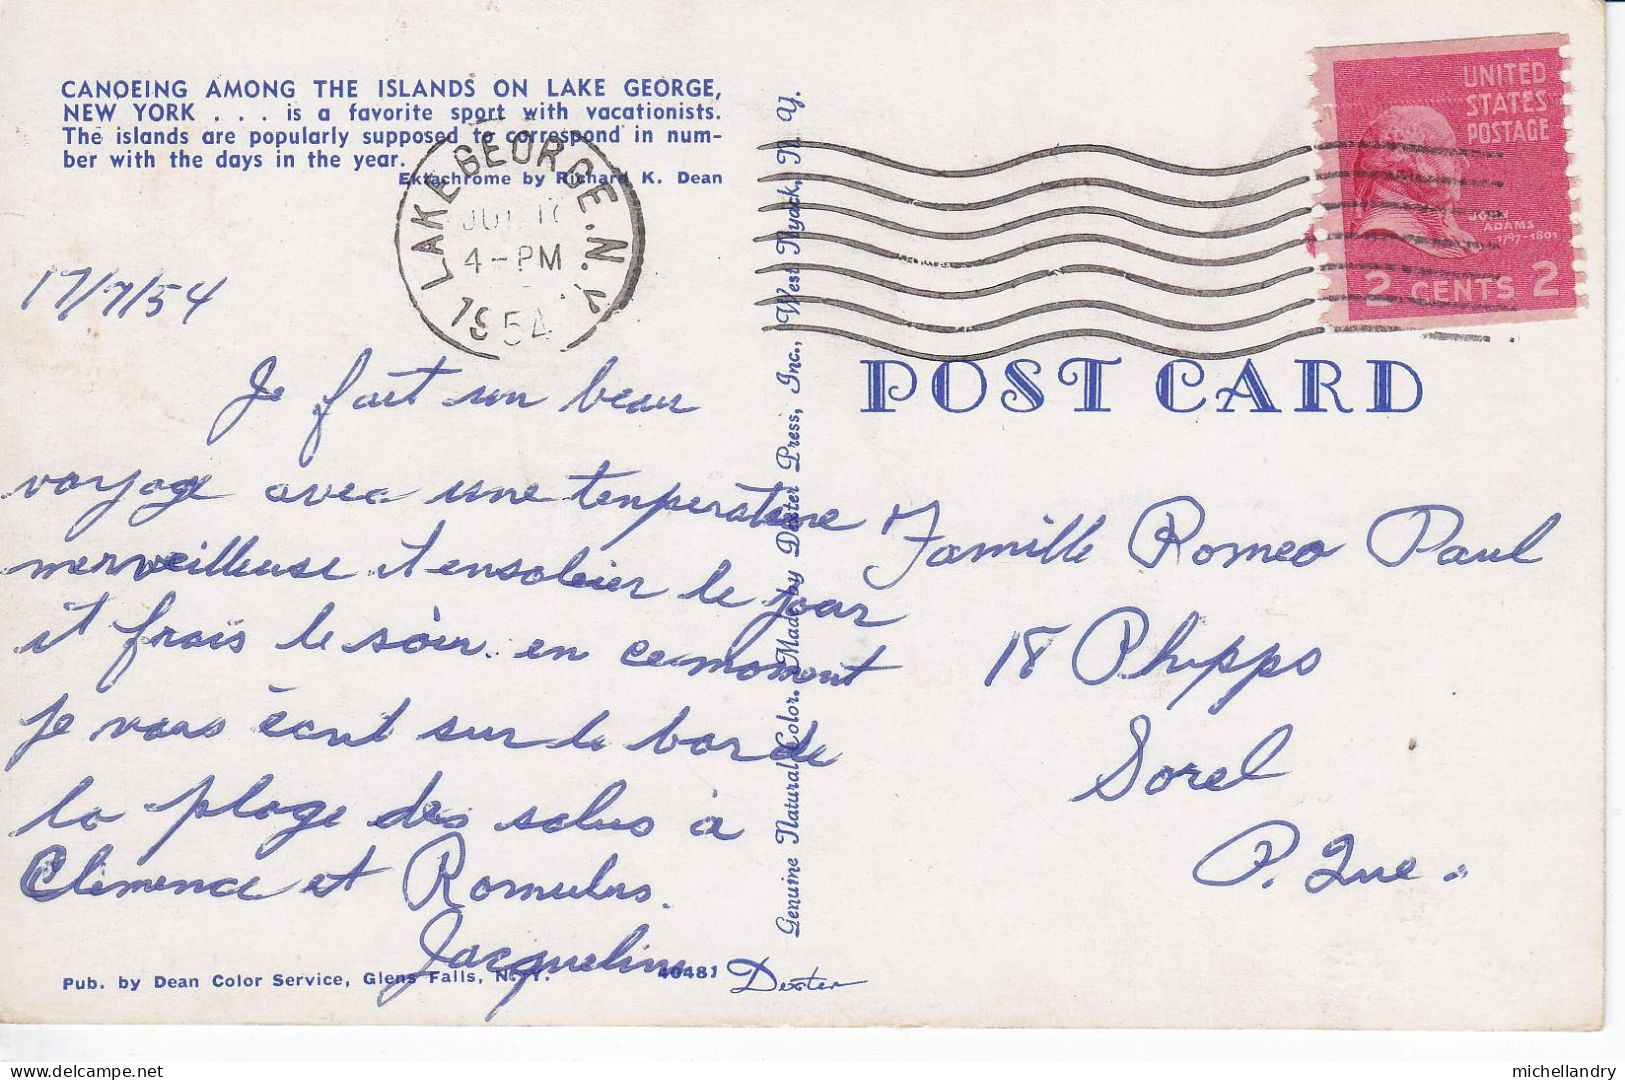 CANOEING AMONG THE ISLANDS ON LAKE GEORGE,
NEW YORK . . . is a favorite sport with vacationists.
The islands are popularly supposed to correspond in num-
ber with the days in the year.
Ektachrome by Richard K. Dean
LAKE GEORGE. N.Y.
JUL 17
4-PM
1954
UNITED
STATES
POSTAGE
JOHN
ADAMS
1797-1801
2 CENTS 2
17/7/54
POST CARD
Je fait un beau
voyage avec une temperature
merveilleuse et ensoleier le jour
et frais le soir. en ce moment
je vous écrit sur le bord de
la plage des salus à
Clémence et Romulus.
Jacqueline
Famille Romeo Paul
18 Phipps
Sorel
P. Que.
Genuine Natural Color. Made by Dexter Press, Inc., West Nyack, N. Y.
Pub. by Dean Color Service, Glens Falls, N. Y.
40481
Dexter
michellandry